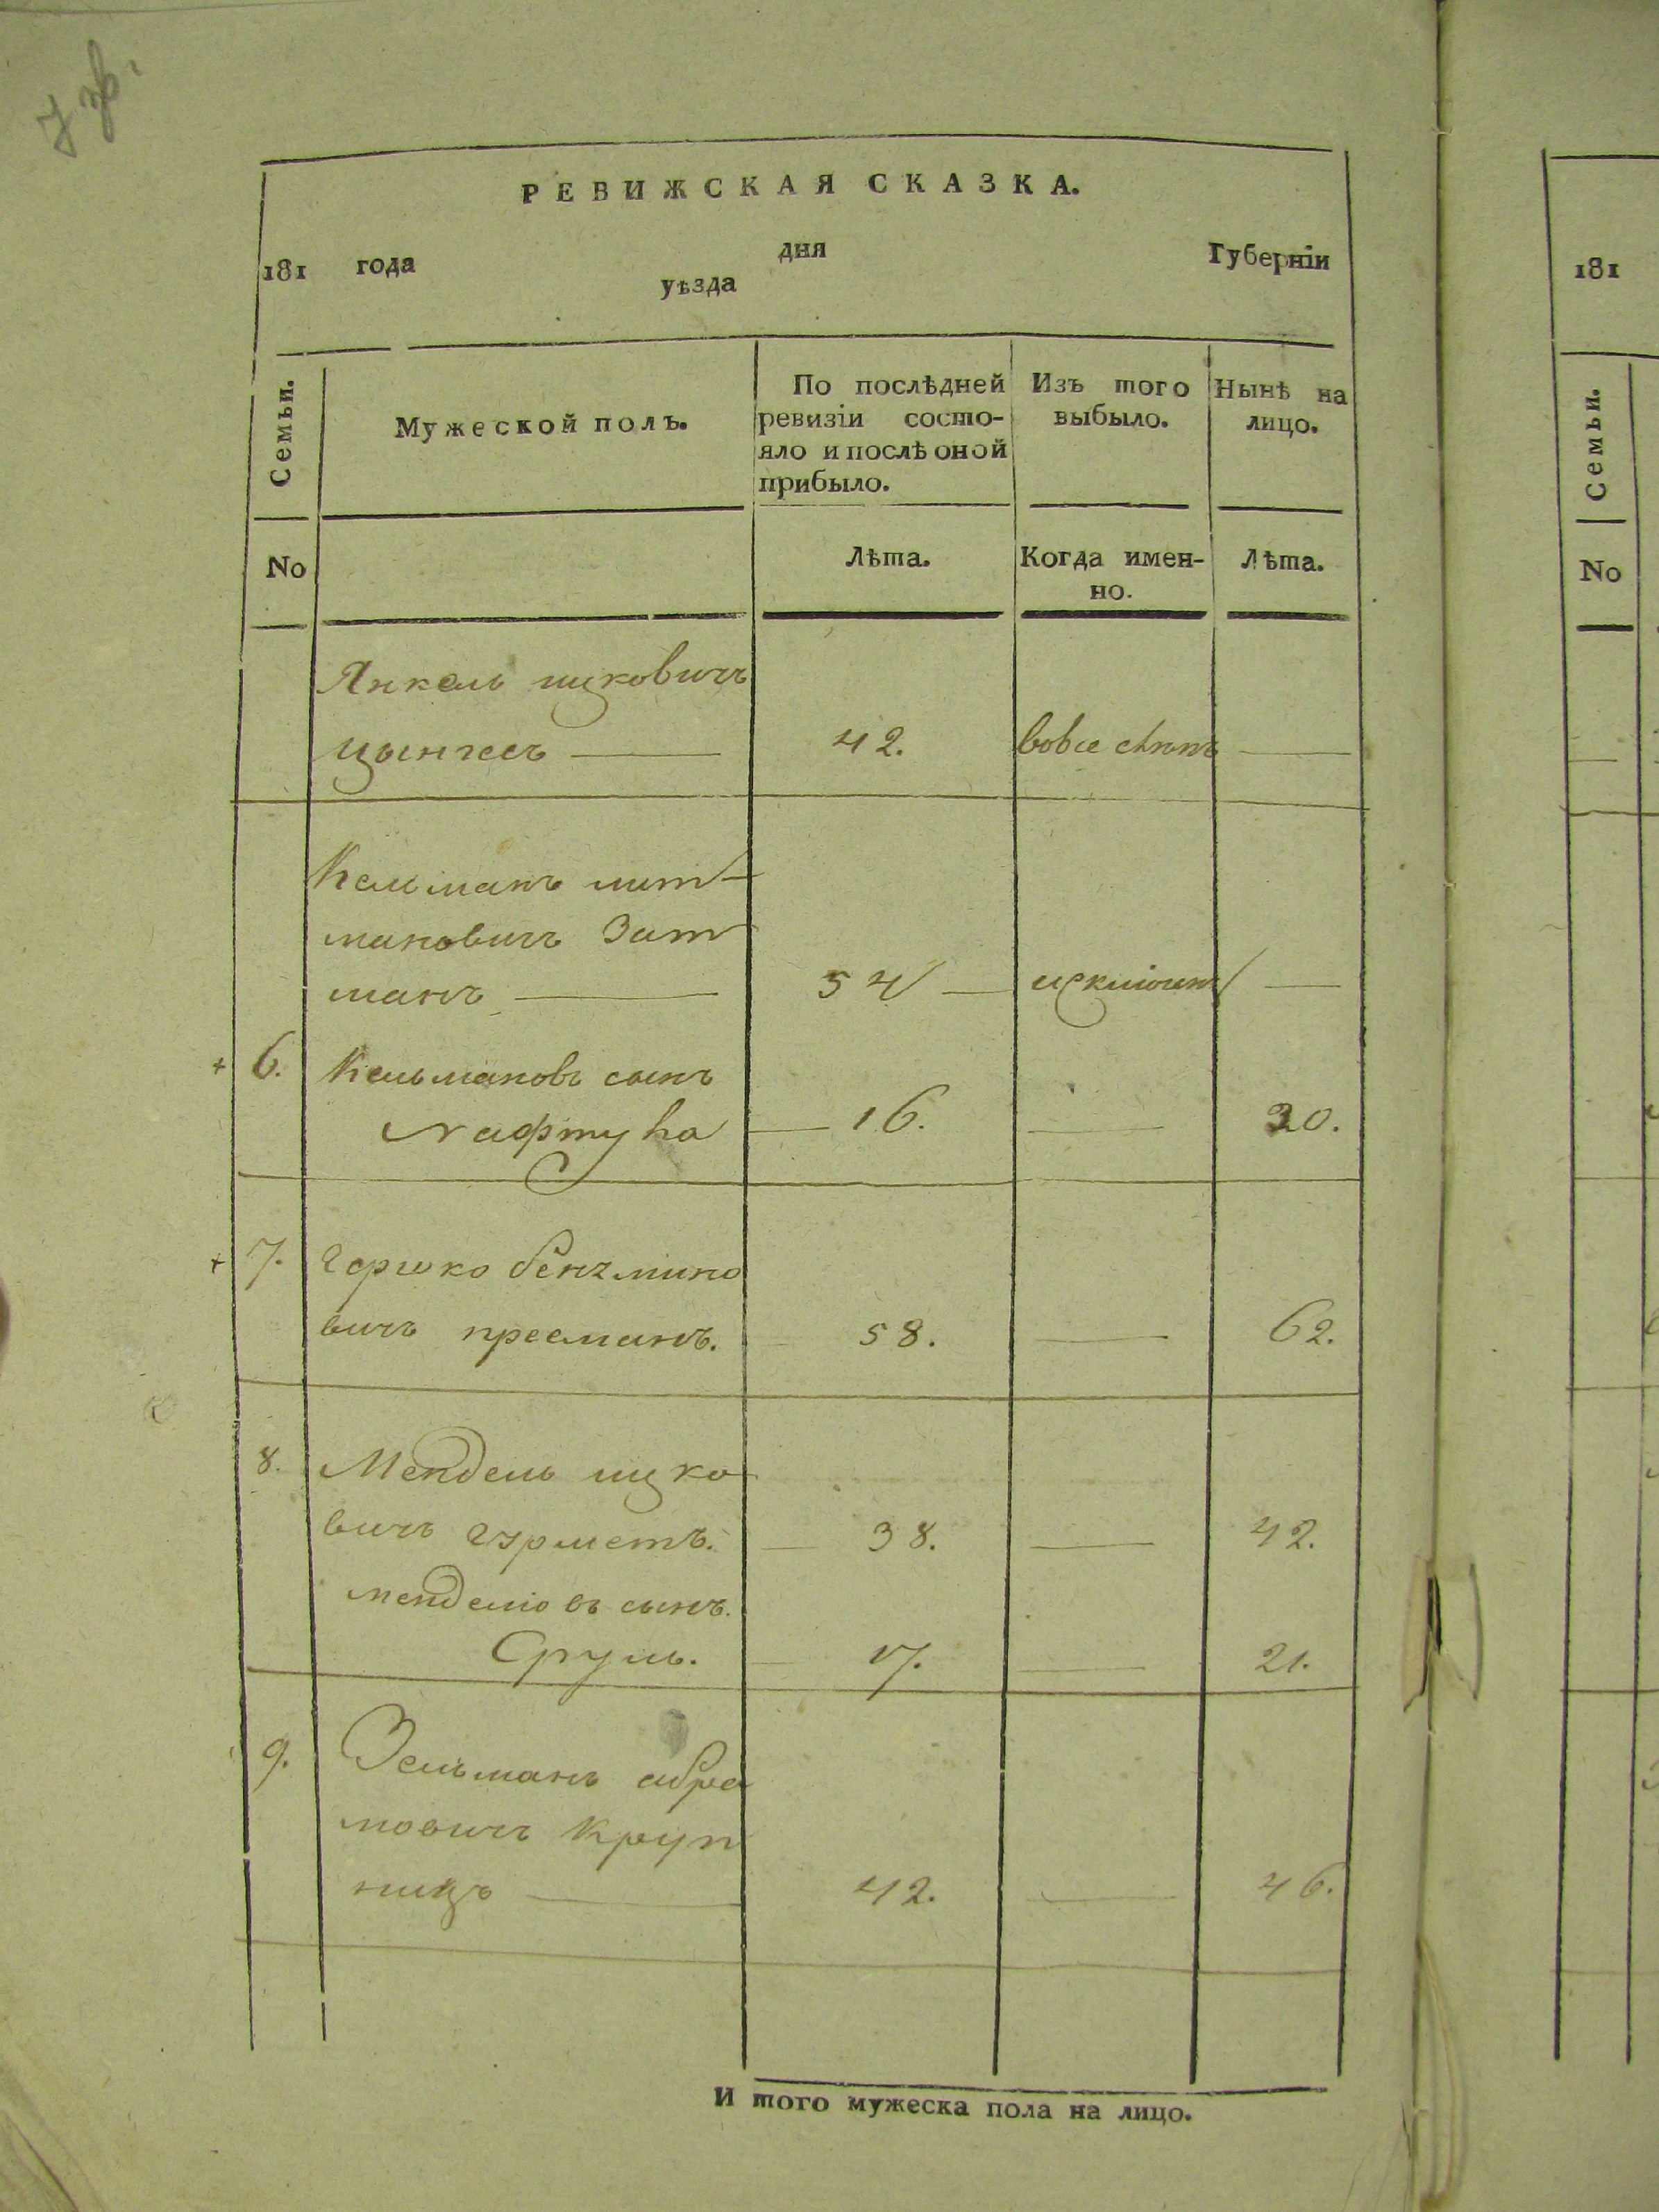 7 зв.
РЕВИЖСКАЯ СКАЗКА.
181 года дня Губерніи
уѣзда
Семьи.
Мужеской полъ.
По послѣдней ревизіи состо-
яло и послѣ оной
прибыло.
Изъ того
выбыло.
Нынѣ на
лицо.
No
Лѣта.
Когда имен-
но.
Лѣта.
Янкель ицковичъ
42.
Кельманъ лит
мановичъ Зат
манъ
54
исключен
6. Кельмановъ сынъ
Нафтула 16. 30.
7. Гершко бенzмино
вичъ пресманъ. 58. 62.
8. Мендель ицко
вичъ гурметъ. 38. 42.
менделювъ сынъ.
Сруль. 17. 21.
9. Зельманъ абра
мовичъ Круп
ницъ 42. 46.
И того мужеска пола на лицо.
181
Семьи.
No